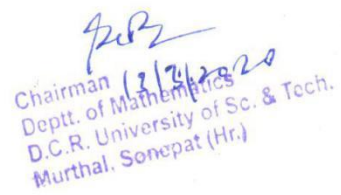 Chairman 13/3/2020
Deptt. of Mathematics
D.C.R. University of Sc. & Tech.
Murthal, Sonepat (Hr.)